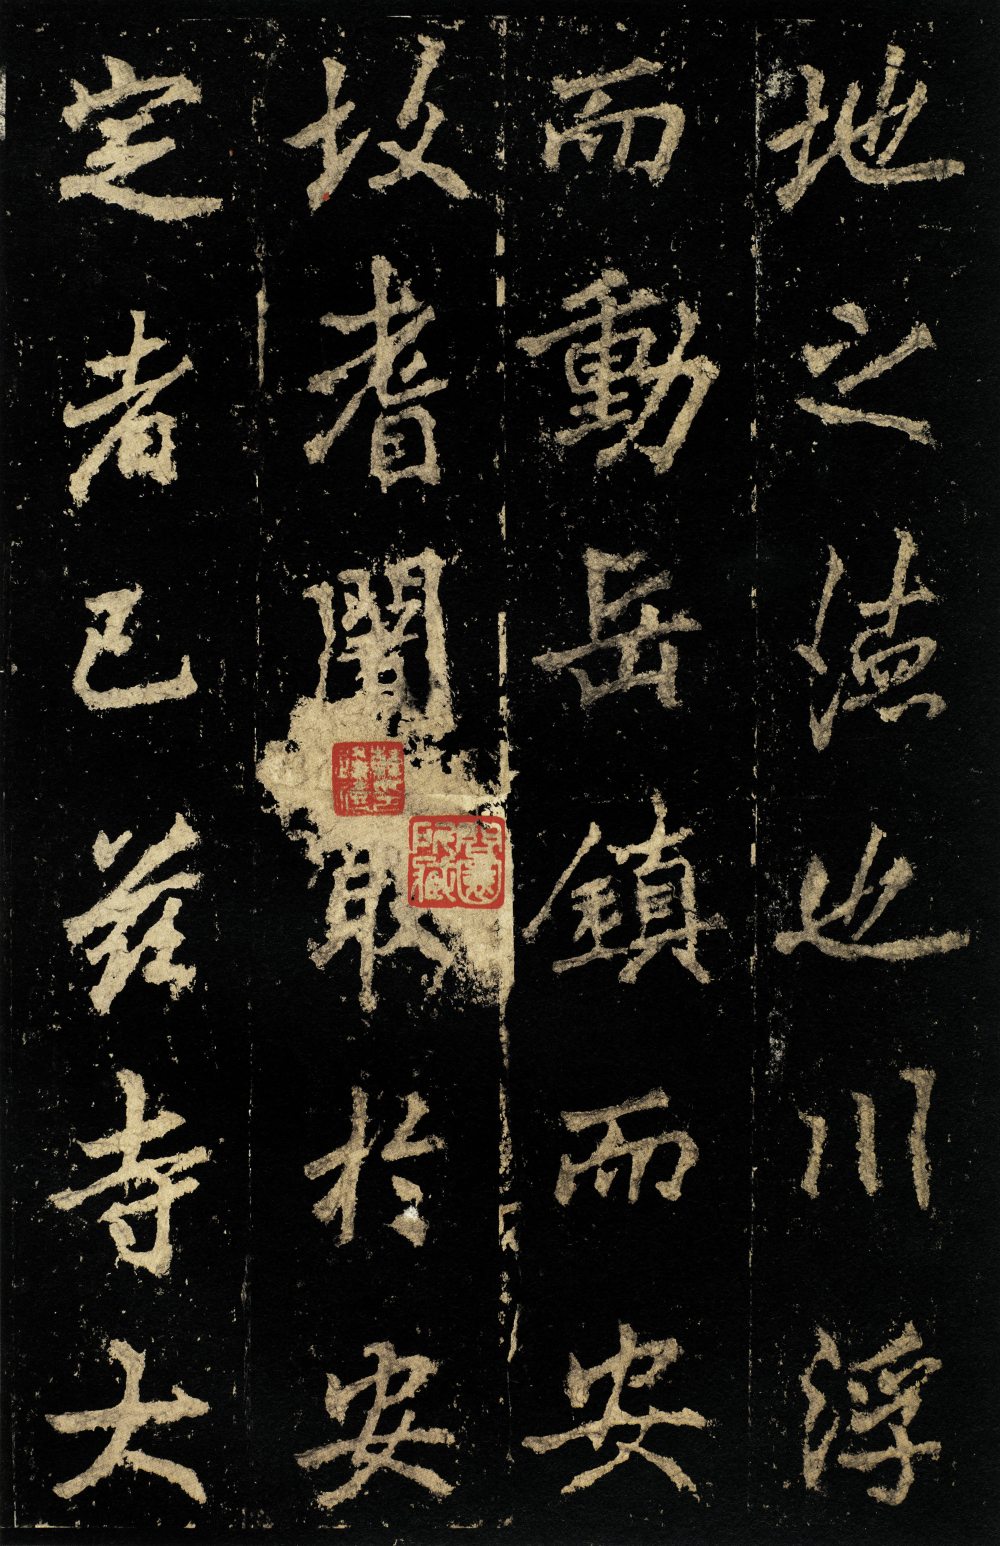 地之德也川浮
而動岳鎮而安
故耆闍取於安
定者已兹寺大